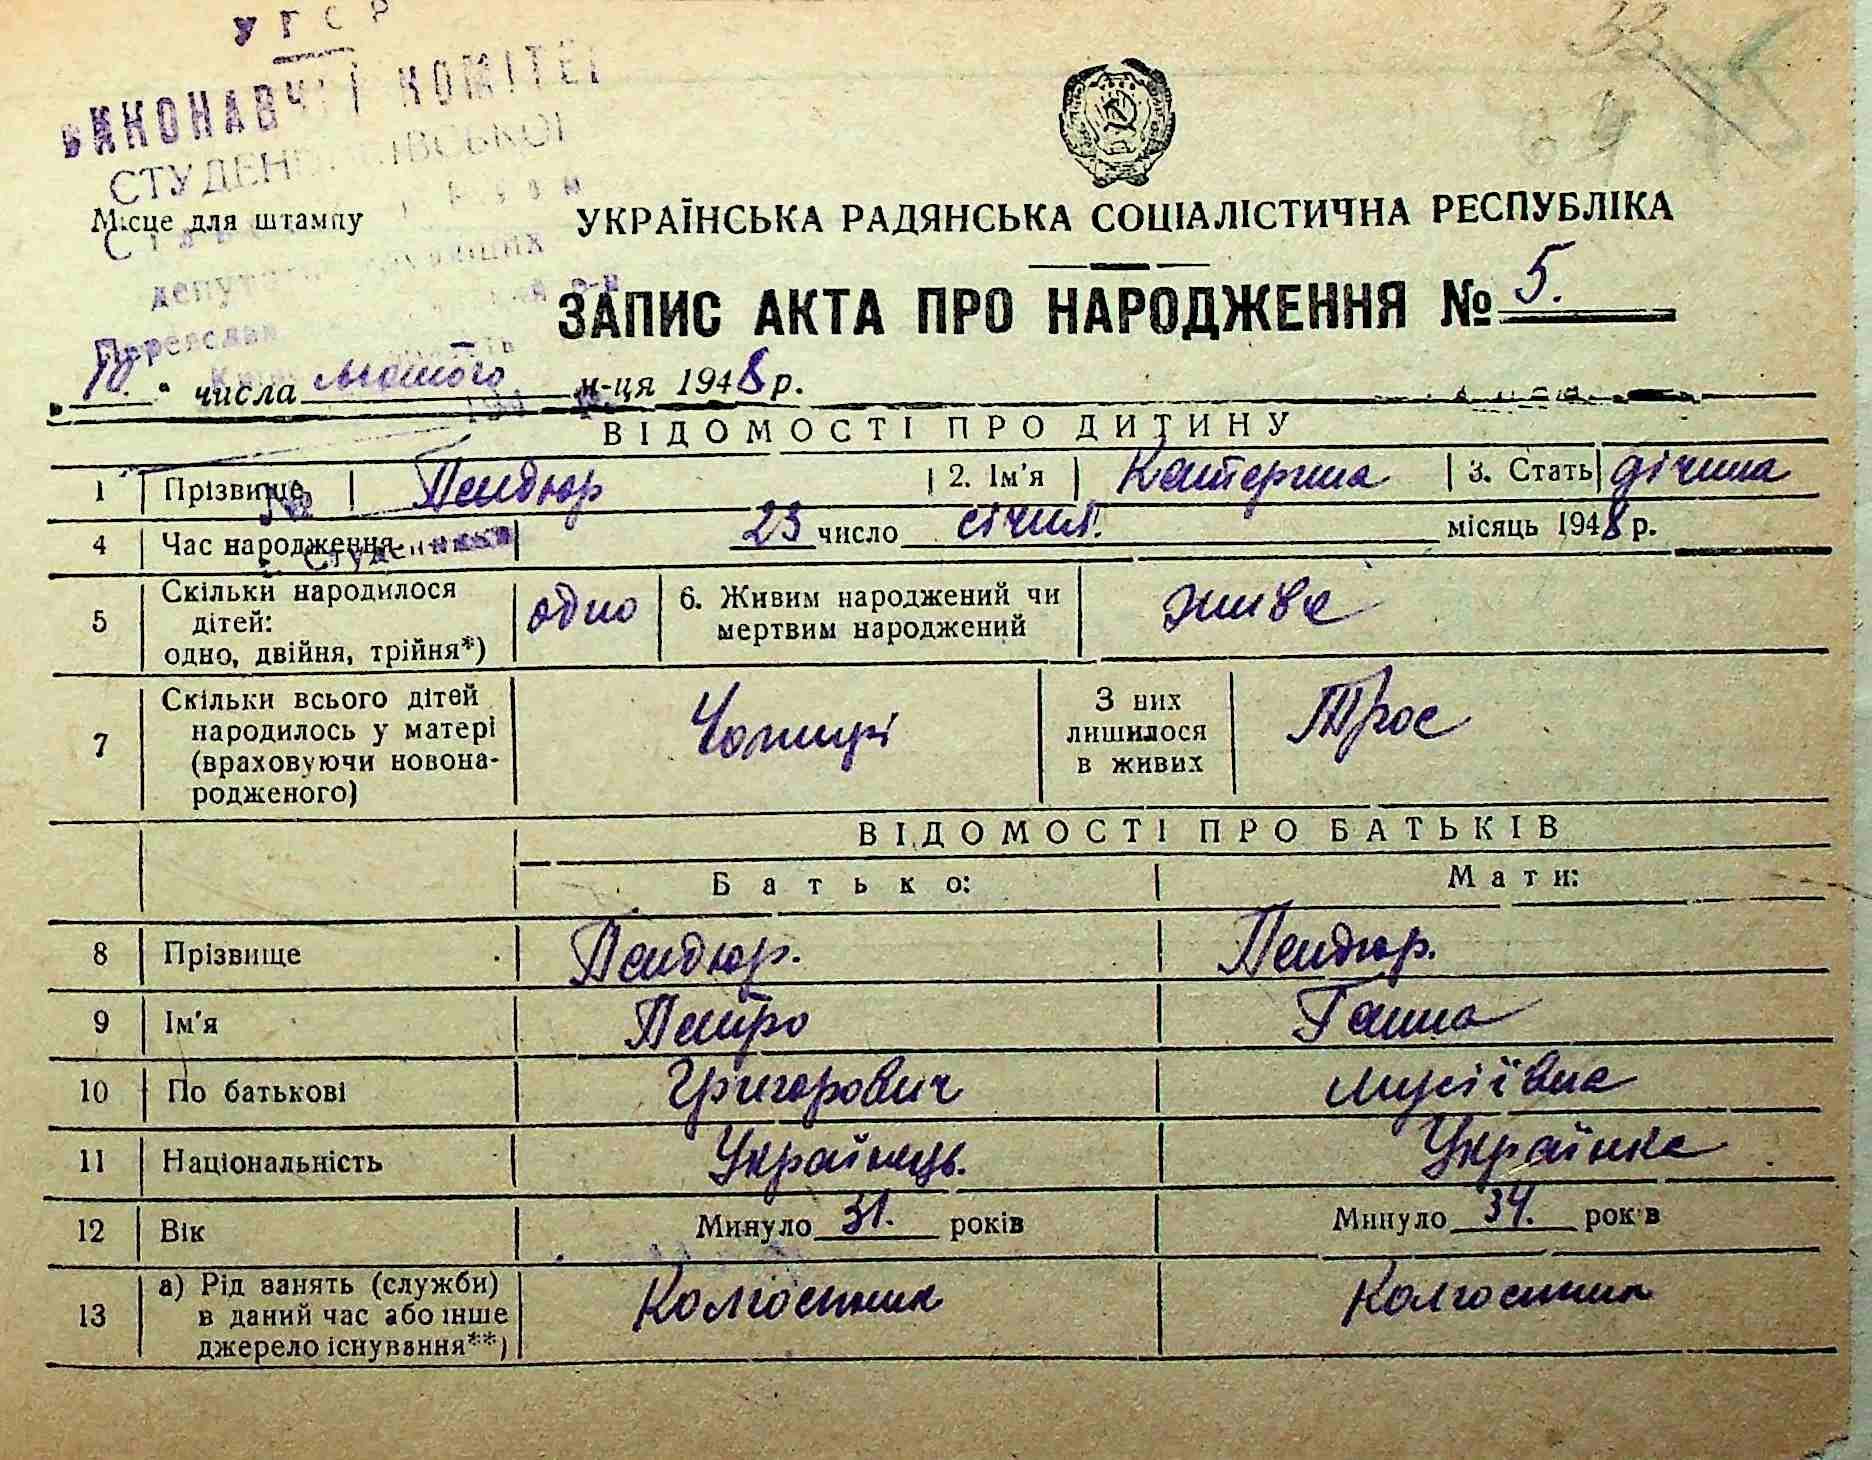 УРСР
ВИКОНАВЧИЙ КОМІТЕТ
Місце для штампу
УКРАЇНСЬКА РАДЯНСЬКА СОЦІАЛІСТИЧНА РЕСПУБЛІКА
ЗАПИС АКТА ПРО НАРОДЖЕННЯ № 5.
„10.“ числа лютого м-ця 1948 р.
ВІДОМОСТІ ПРО ДИТИНУ
1 Прізвище Пендюр 2. Ім'я Катерина 3. Стать дічина
4 Час народження 23 число січня. місяць 1948 р.
5 Скільки народилося дітей: одно, двійня, трійня*) одно 6. Живим народжений чи мертвим народжений живе
7 Скільки всього дітей народилось у матері (враховуючи новонародженого) Чотирі З них лишилося в живих Троє
ВІДОМОСТІ ПРО БАТЬКІВ
Батько: Мати:
8 Прізвище Пендюр. Пендюр.
9 Ім'я Петро Ганна
10 По батькові Григорович Мусіївна
11 Національність Українець. Українка
12 Вік Минуло 31. років Минуло 34. років
13 а) Рід занять (служби) в даний час або інше джерело існування**) Колгоспник Колгоспник